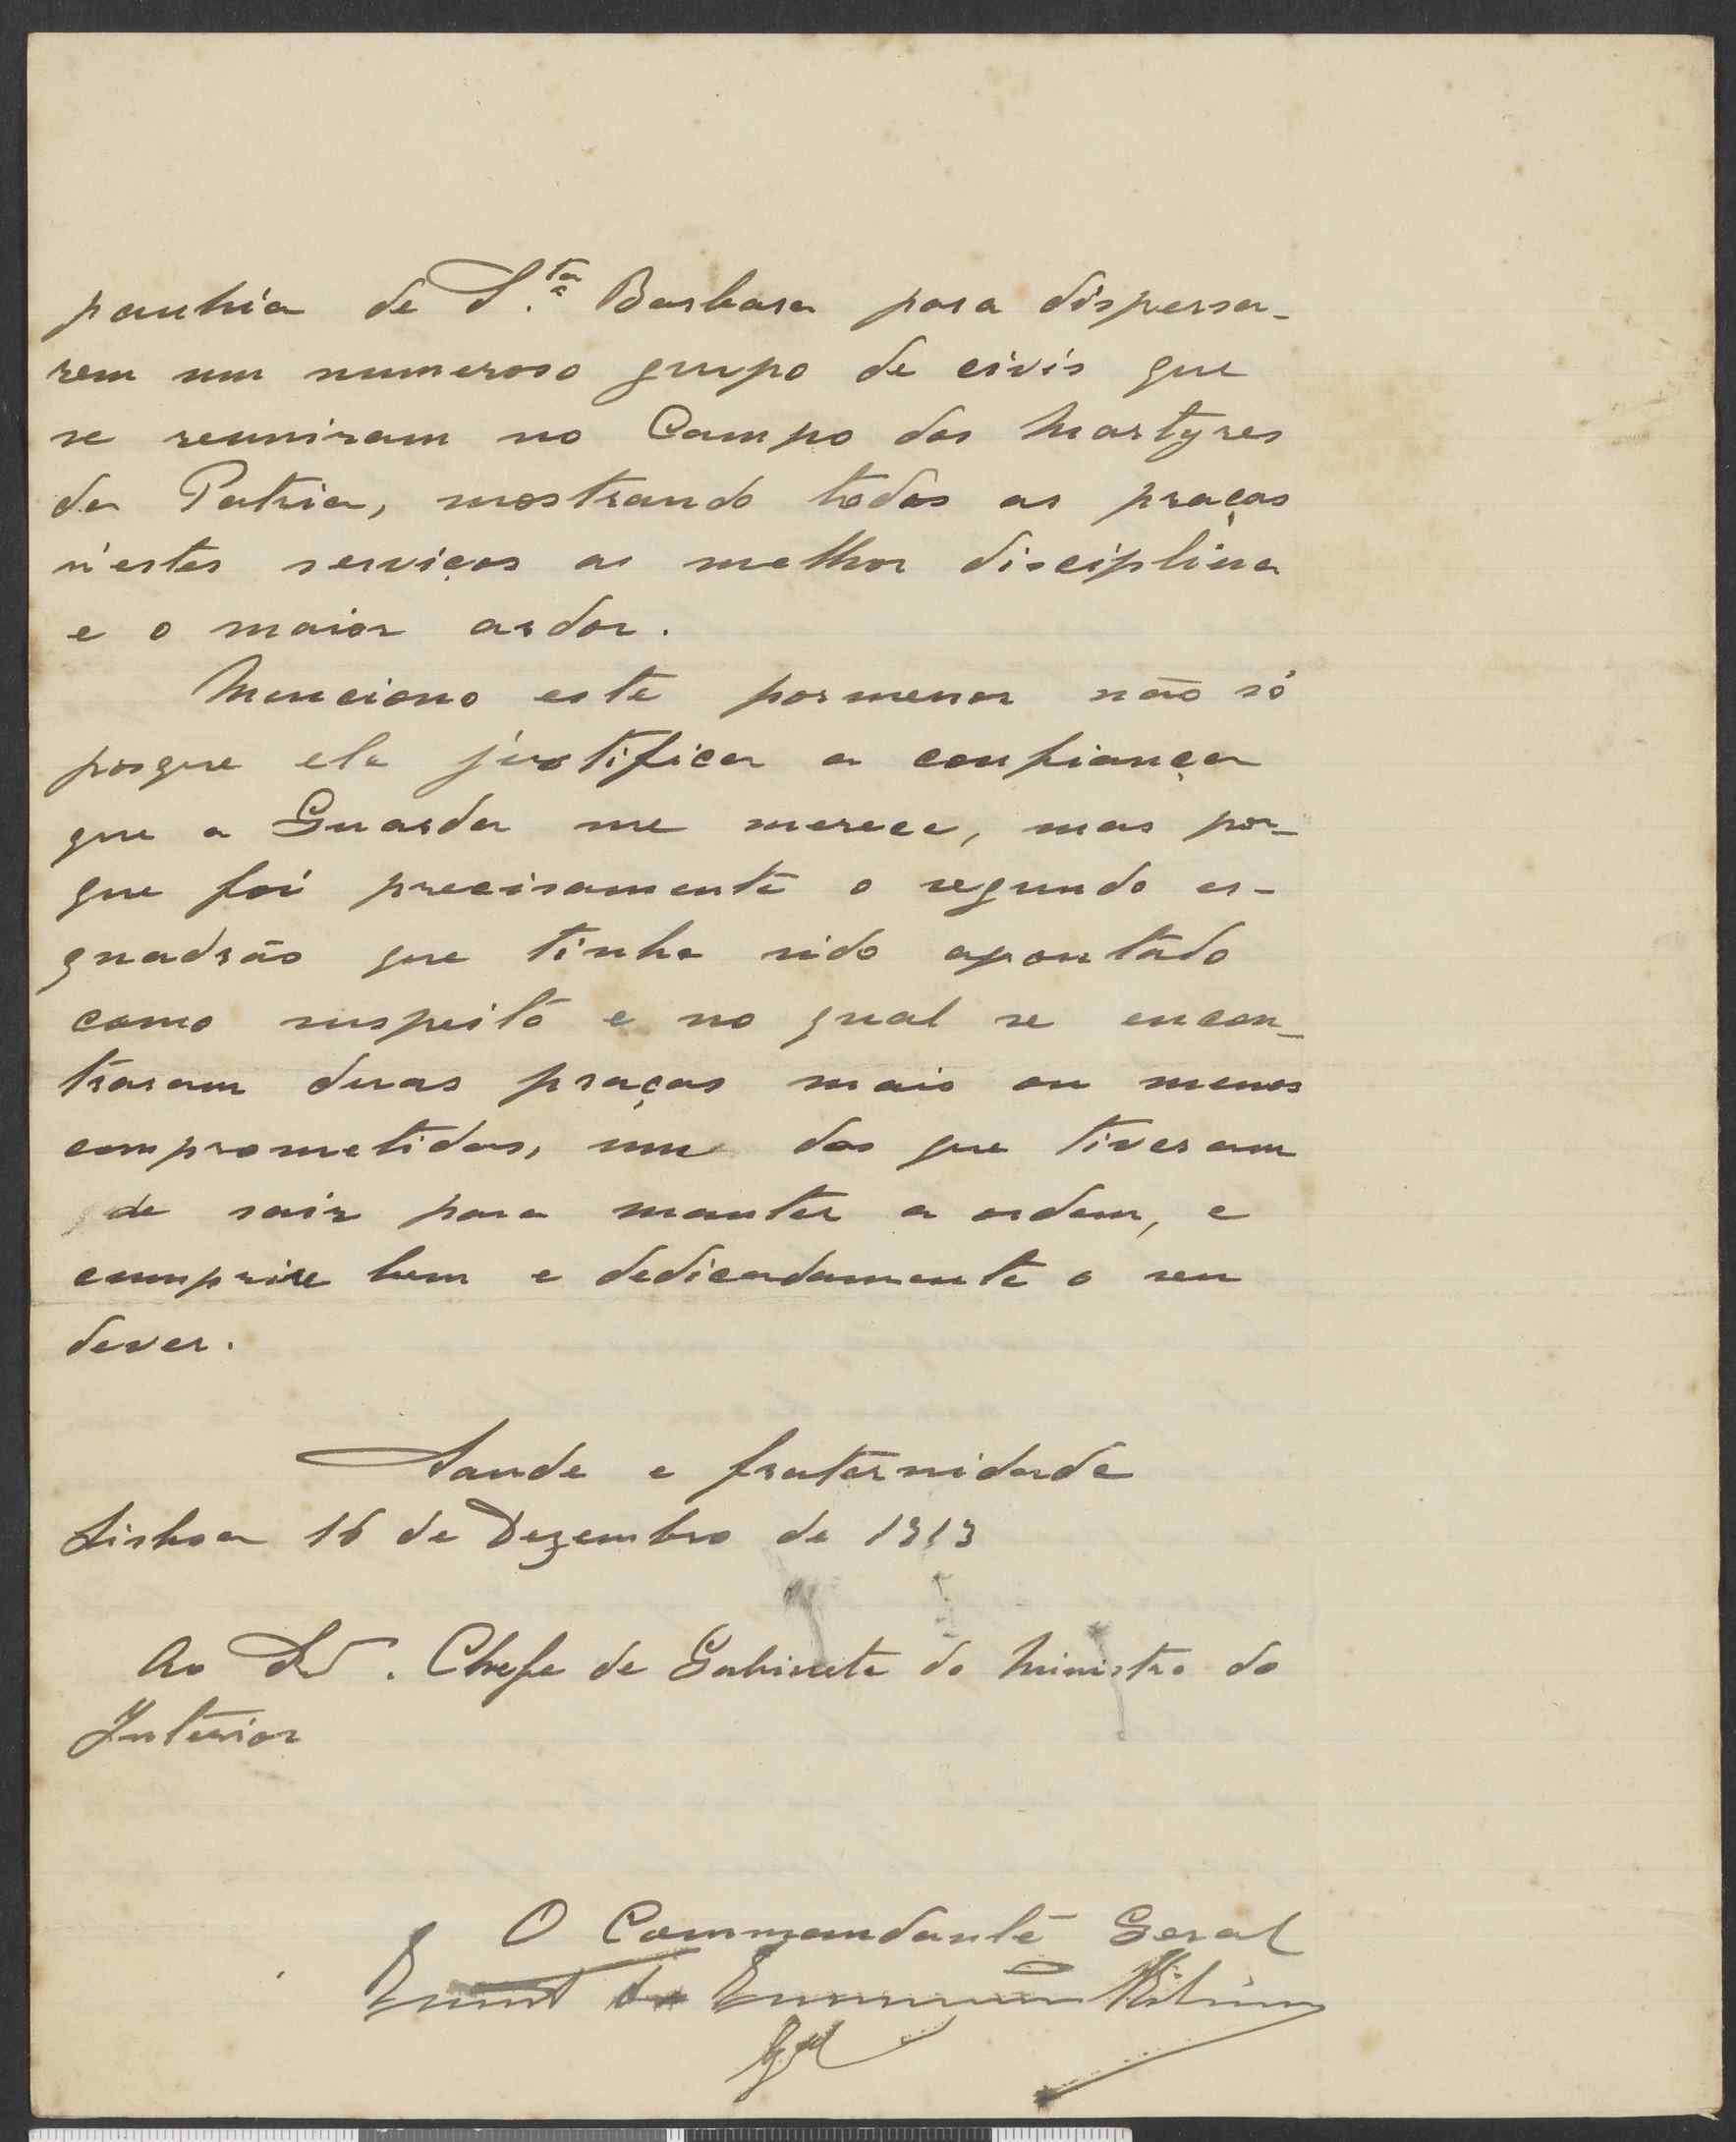 panhia de S.ta Barbara para dispersa-
rem um numeroso grupo de civis que
se reuniram no Campo dos Martyres
da Patria, mostrando todas as praças
n'estes serviços a melhor disciplina
e o maior ardor.
Menciono este pormenor não só
porque ele justifica a confiança
que a Guarda me merece, mas por-
que foi precisamente o segundo es-
quadrão que tinha sido apontado
como suspeito e no qual se encon-
traram duas praças mais ou menos
comprometidas, um dos que tiveram
de sair para manter a ordem, e
cumprire bem e dedicadamente o seu
dever.
Saude e fraternidade
Lisboa 16 de Dezembro de 1913
Ao Snr. Chefe de Gabinete do Ministro do
Interior
O Commandante Geral